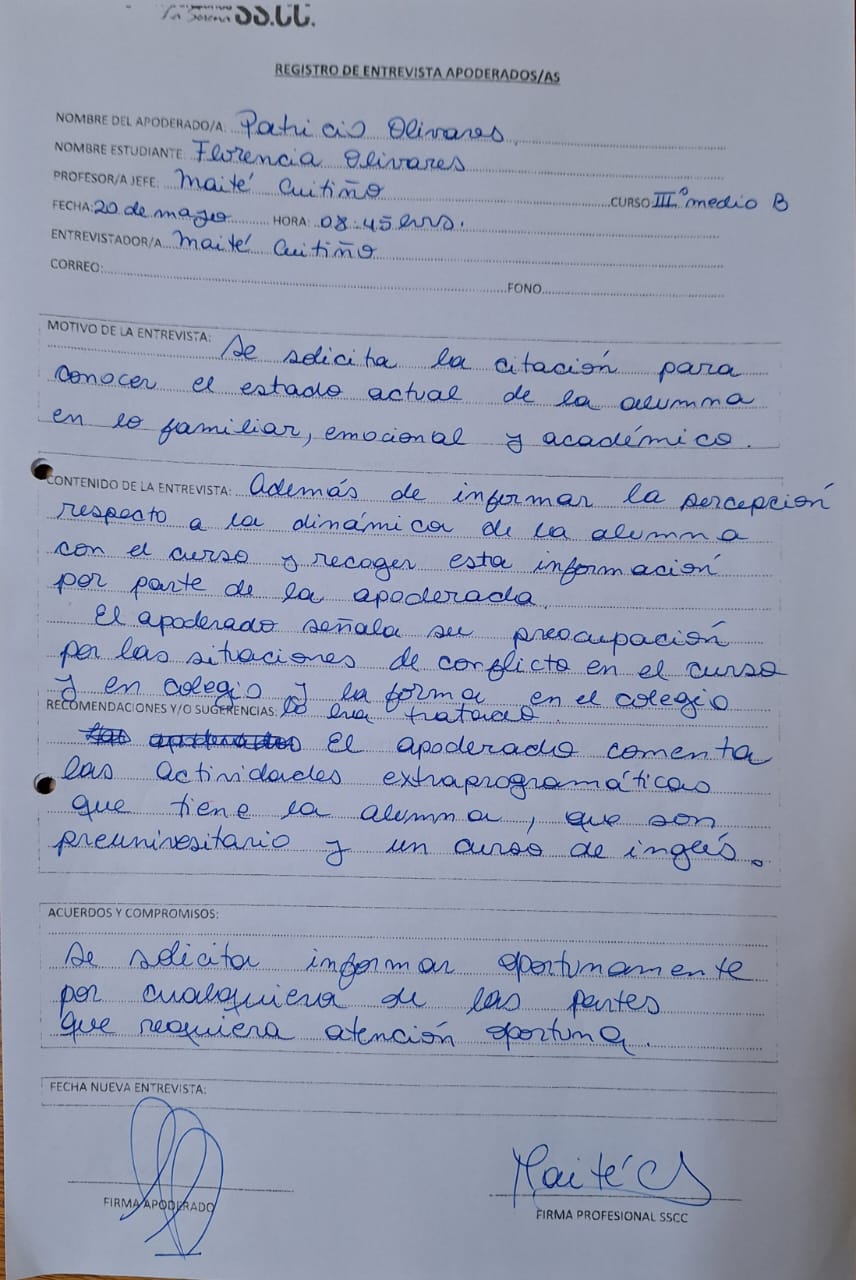 La Serena SS.CC.
REGISTRO DE ENTREVISTA APODERADOS/AS
NOMBRE DEL APODERADO/A: Patricio Olivares
NOMBRE ESTUDIANTE: Florencia Olivares
PROFESOR/A JEFE: Maité Cuitiño CURSO III° medio B
FECHA: 20 de mayo HORA: 08:45 hrs.
ENTREVISTADOR/A Maité Cuitiño
CORREO: FONO
MOTIVO DE LA ENTREVISTA: Se solicita la citación para
conocer el estado actual de la alumna
en lo familiar, emocional y académico.
CONTENIDO DE LA ENTREVISTA: Además de informar la percepción
respecto a la dinámica de la alumna
con el curso y recoger esta información
por parte de la apoderada.
El apoderado señala su preocupación
por las situaciones de conflicto en el curso
y en colegio y la forma en el colegio
RECOMENDACIONES Y/O SUGERENCIAS: lo era tratado.
El apoderado comenta
las actividades extraprogramáticas
que tiene la alumna, que son
preuniversitario y un curso de inglés.
ACUERDOS Y COMPROMISOS:
Se solicita informar oportunamente
por cualquiera de las partes
que requiera atención oportuna.
FECHA NUEVA ENTREVISTA:
Maité C
FIRMA APODERADO
FIRMA PROFESIONAL SSCC